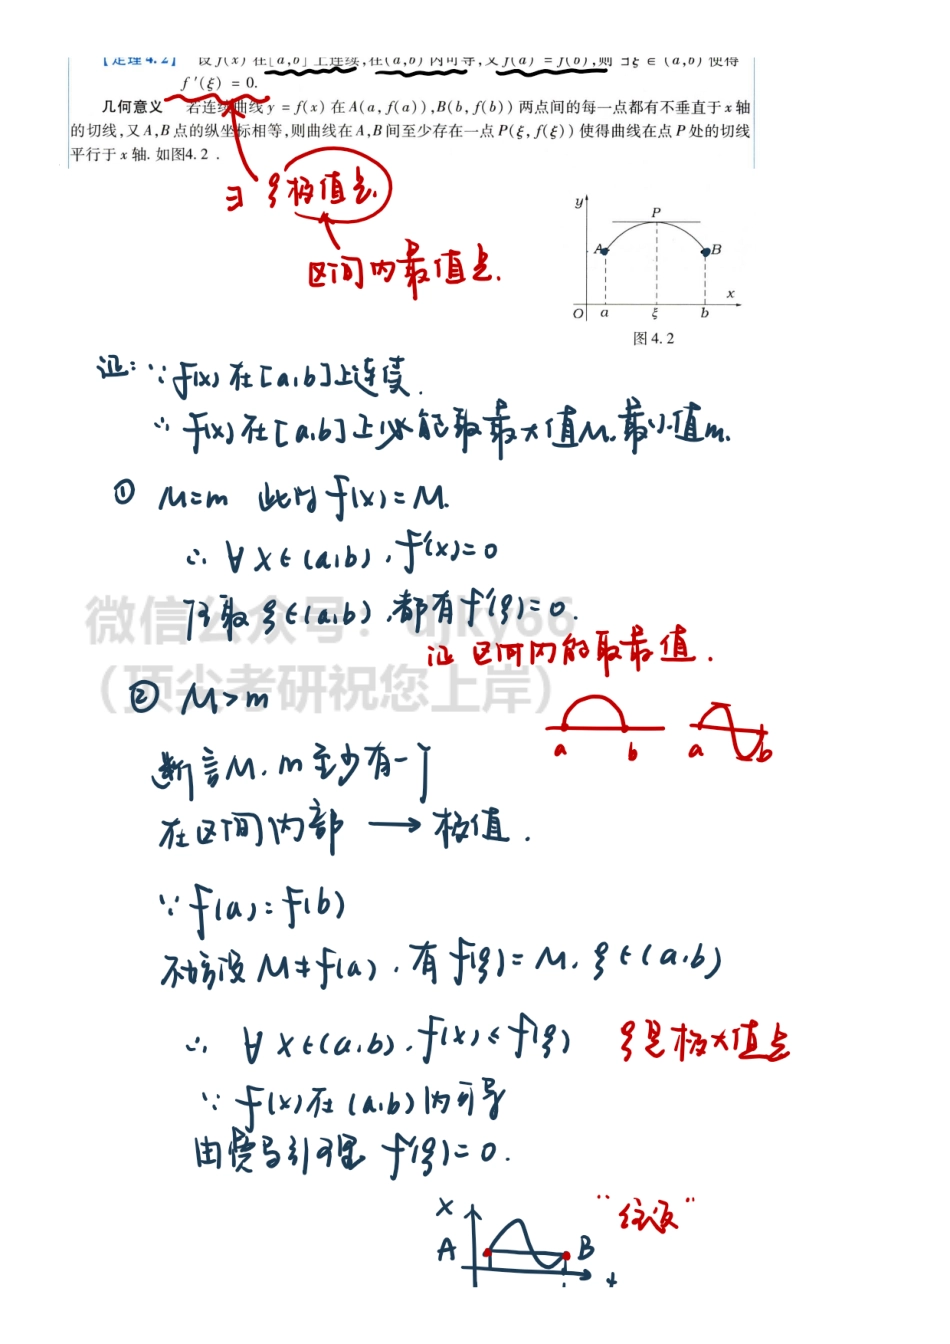 【定理4.2】 设 f(x) 在[a,b]上连续,在(a,b)内可导,又f(a) = f(b),则 ∃ξ ∈ (a,b) 使得
f ′(ξ) = 0.
几何意义 若连续曲线 y = f(x) 在 A(a, f(a)),B(b, f(b)) 两点间的每一点都有不垂直于 x 轴
的切线,又 A,B 点的纵坐标相等,则曲线在 A,B 间至少存在一点 P(ξ, f(ξ)) 使得曲线在点 P 处的切线
平行于 x 轴. 如图4.2 .
∃ ξ极值点.
区间内最值点.
y
P
A B
x
O a ξ b
图 4.2
证: ∵ f(x) 在 [a,b] 上连续.
∴ f(x) 在 [a,b] 上必能取最大值M. 最小值m.
① M=m 此时 f(x)=M.
∴ ∀ x∈(a,b), f'(x)=0
任取 ξ∈(a,b), 都有 f'(ξ)=0.
微信公众号: djky66
证 区间内能取最值.
(顶尖考研祝您上岸)
② M>m
a b a b
断言M. m至少有一个
在区间内部 → 极值.
∵ f(a)=f(b)
不妨设 M≠f(a). 有 f(ξ)=M. ξ∈(a,b)
∴ ∀ x∈(a,b). f(x)≤f(ξ) ξ是极大值点
∵ f(x)在 (a,b) 内可导
由费马引理 f'(ξ)=0.
X “往返”
A B
t